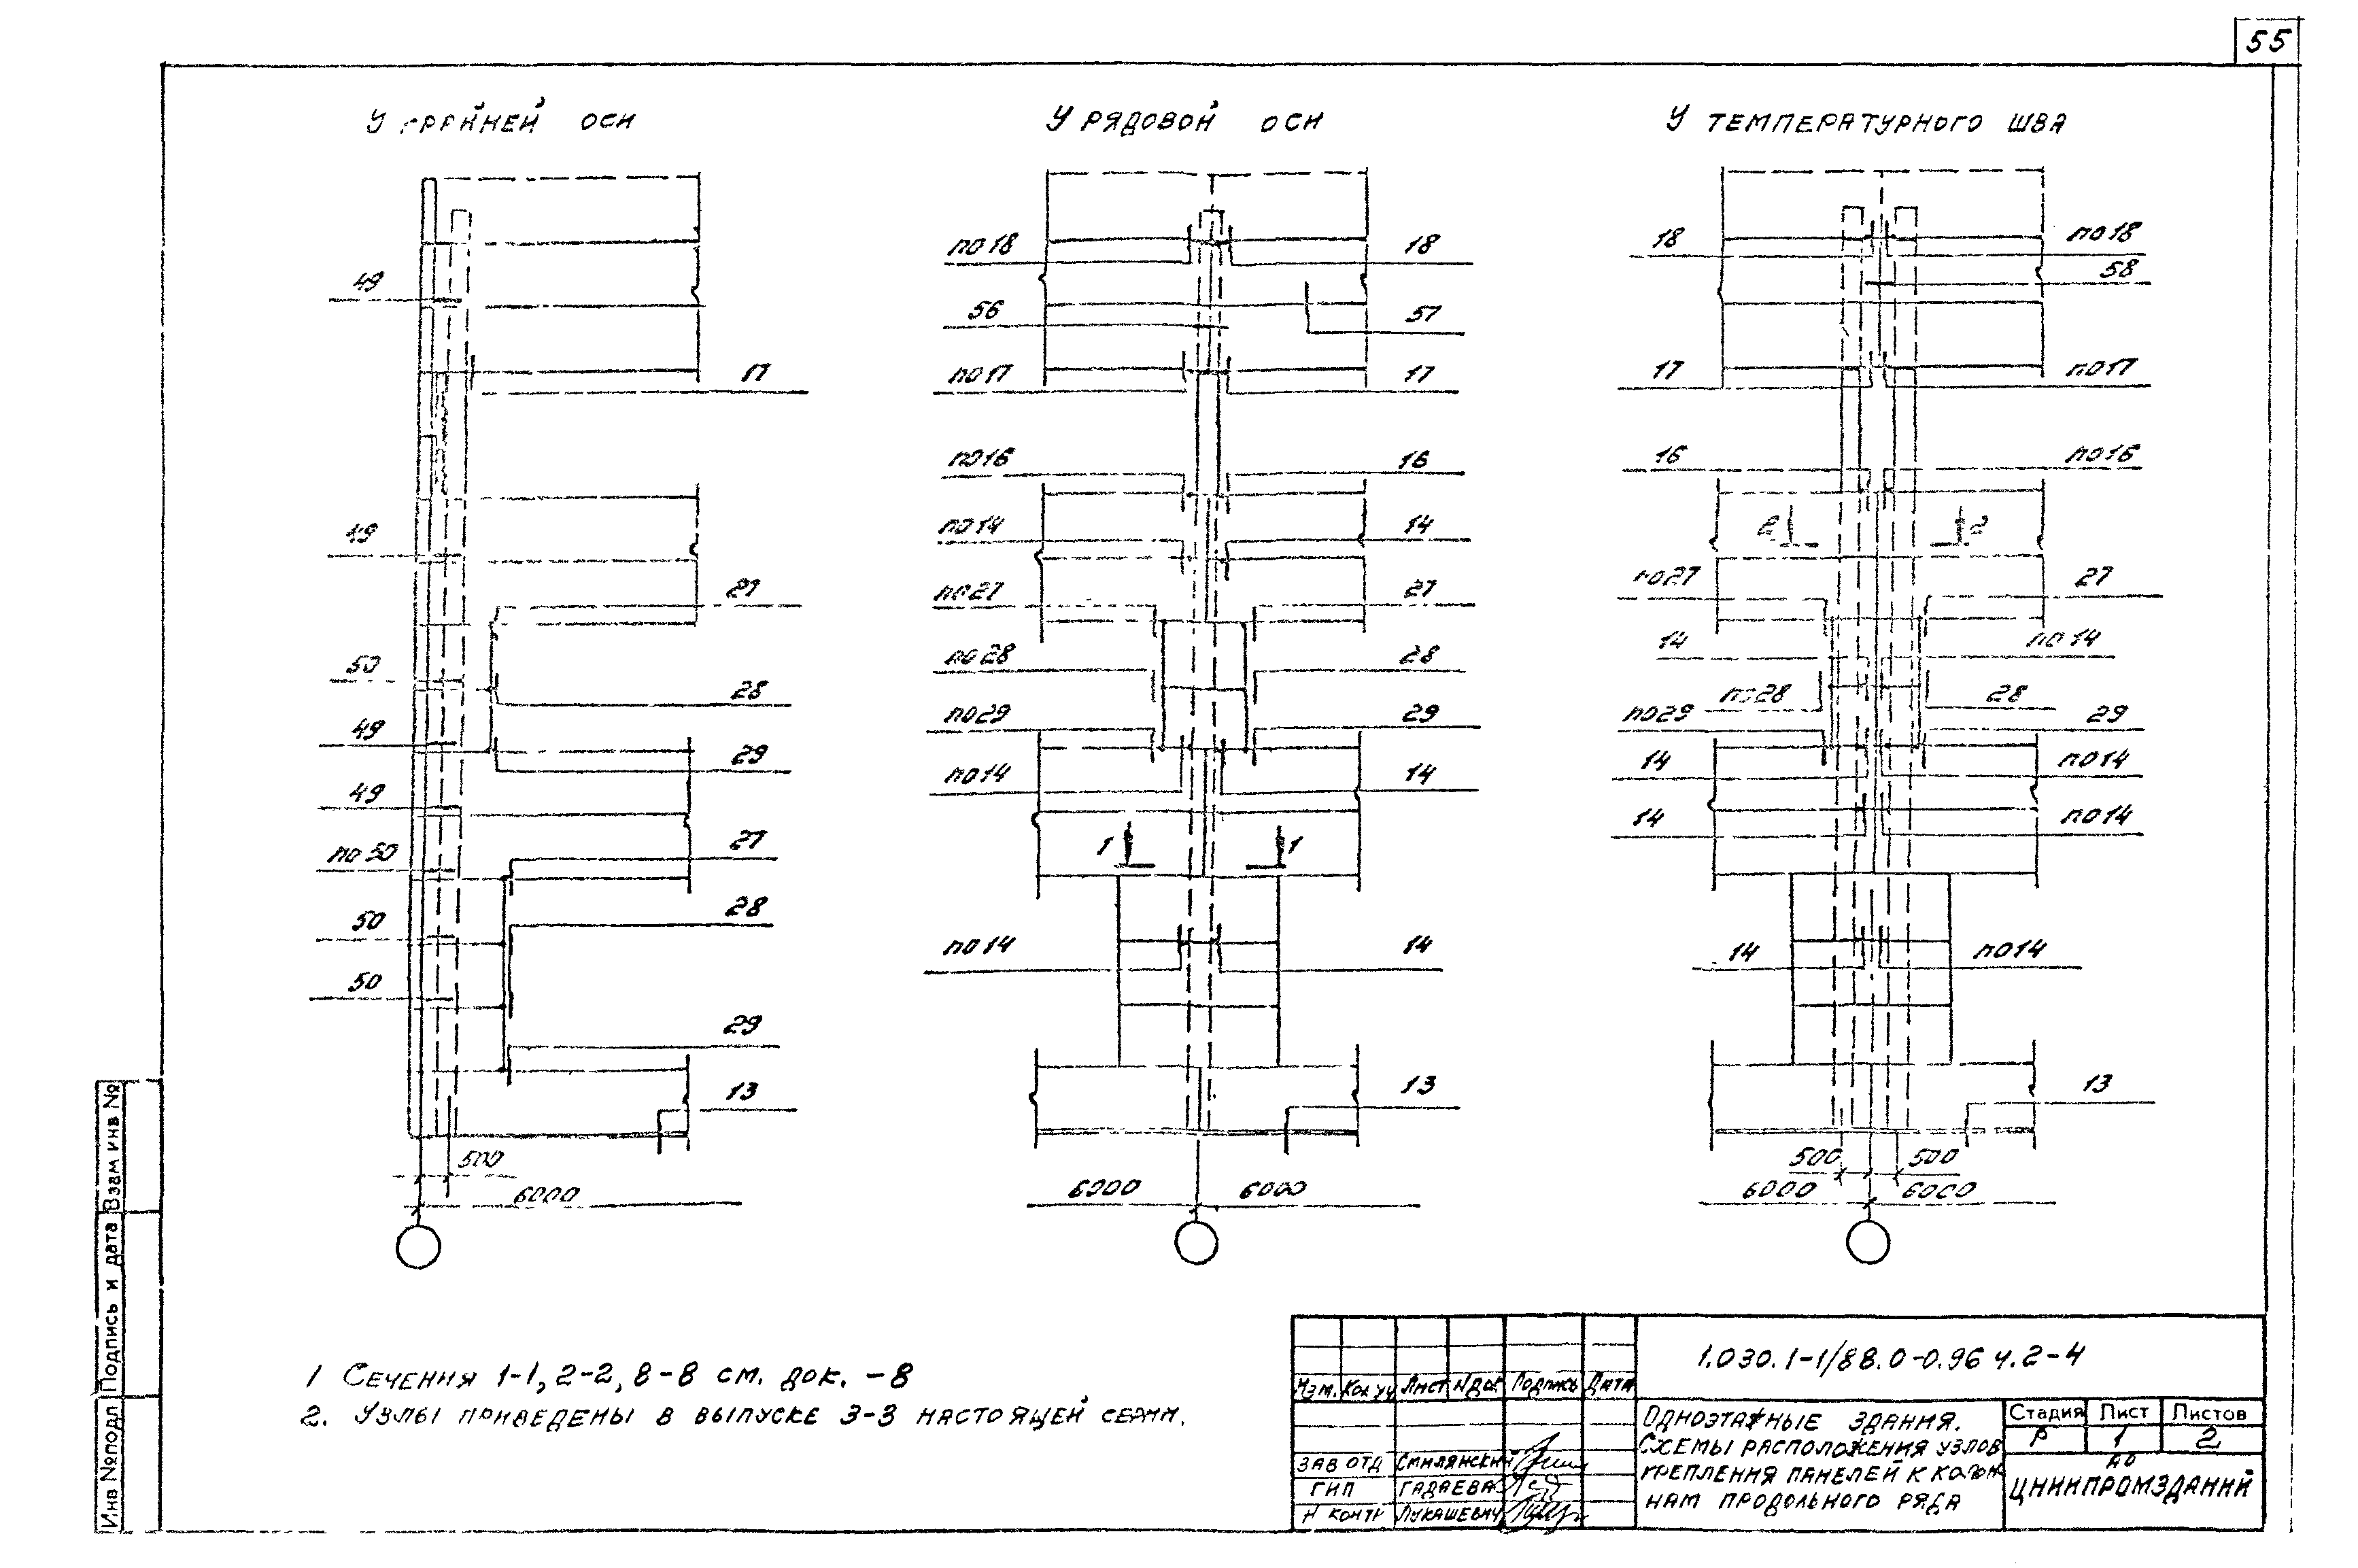 55
У крайней оси
49
17
49
27
50
28
49
29
49
27
по 50
50
28
50
29
13
500
6000
У рядовой оси
по 18
18
56
57
по 17
17
по 16
16
по 14
14
по 27
27
по 28
28
по 29
29
по 14
14
1
1
по 14
14
13
6000
6000
У температурного шва
18
по 18
58
17
по 17
16
по 16
2
2
по 27
27
14
по 14
по 28
28
по 29
29
14
по 14
14
по 14
14
по 14
13
500
500
6000
6000
1 Сечения 1-1, 2-2, 8-8 см. док. -8
2. Узлы приведены в выпуске 3-3 настоящей серии.
1.030.1-1/88.0-0.96 ч.2-4
Изм. Кол уч Лист Nдок Подпись Дата
Одноэтажные здания.
Схемы расположения узлов
крепления панелей к колон-
нам продольного ряда
Стадия Лист Листов
Р 1 2
АО
ЦНИИПРОМЗДАНИЙ
Зав отд Смилянский
ГИП Гадаева
Н контр Лукашевич
Взам инв №
Подпись и дата
Инв №подл